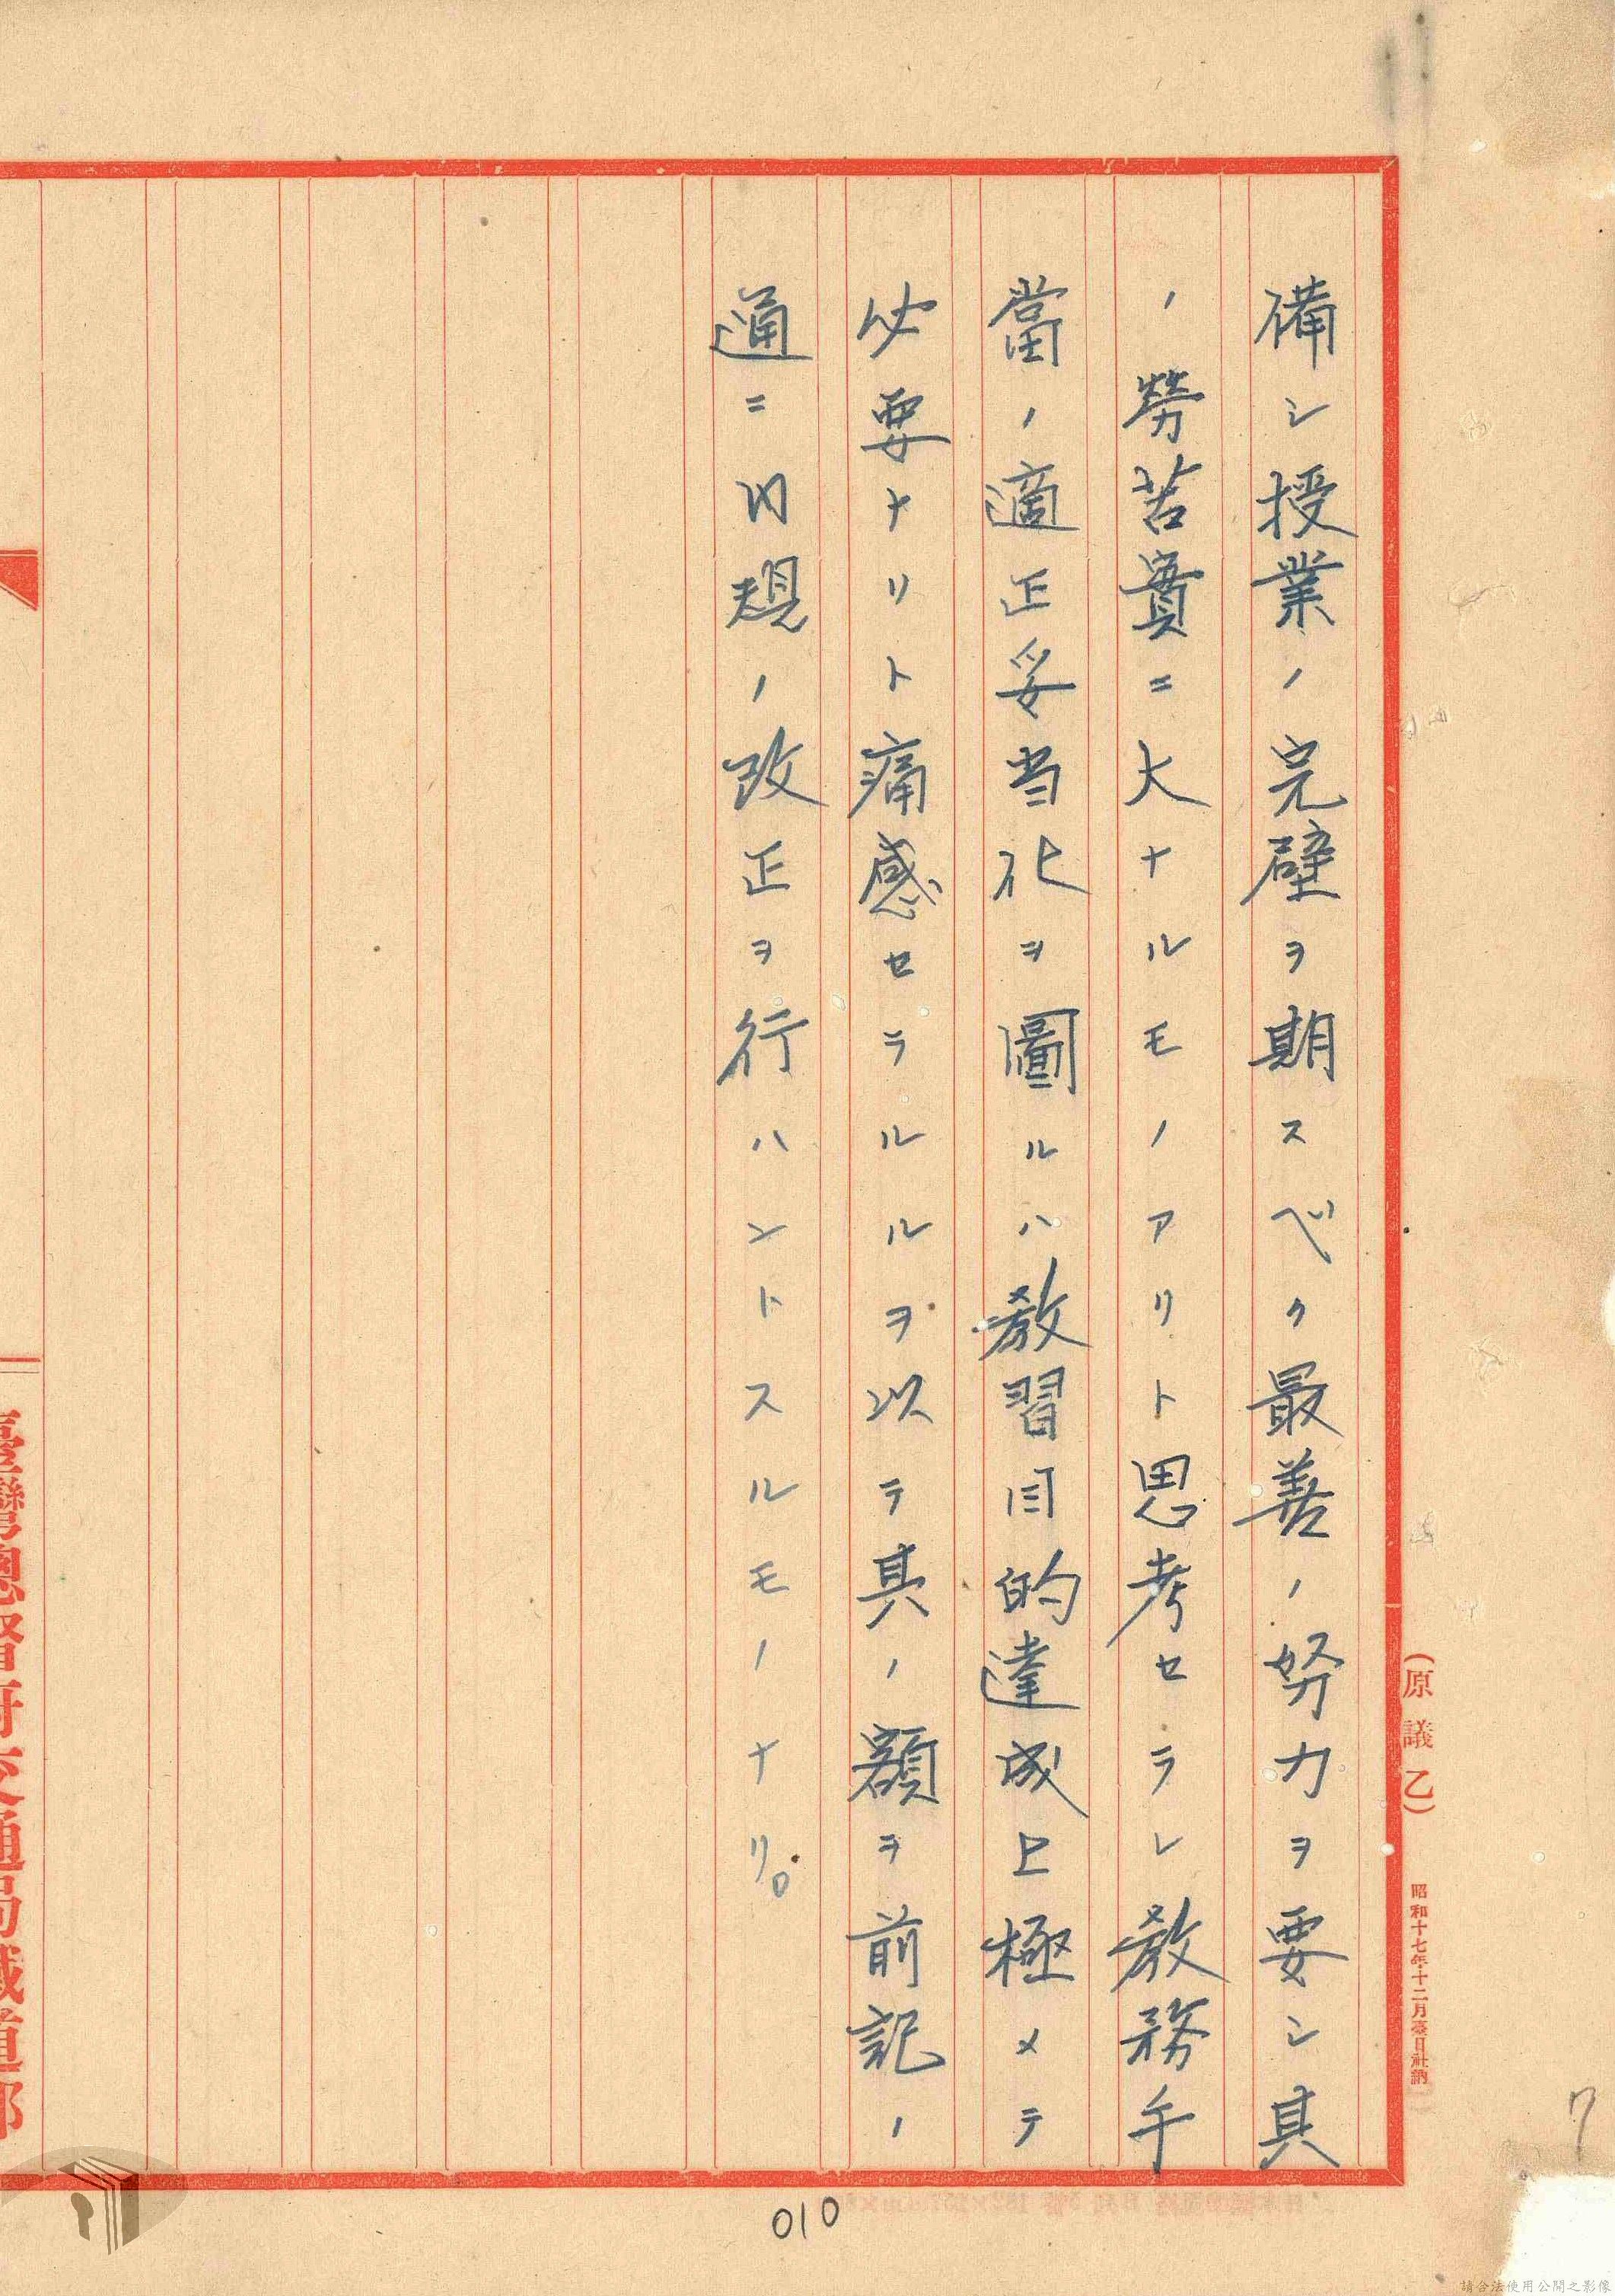 備シ授業ノ完璧ヲ期スベク最善ノ努力ヲ要シ其
ノ勞苦實ニ大ナルモノアリト思考セラレ教務手
當ノ適正妥当化ヲ圖ルハ教習目的達成上極メテ
必要ナリト痛感セラルルヲ以テ其ノ額ヲ前記ノ
通ニ内規ノ改正ヲ行ハントスルモノナリ。
(原議乙)
昭和十七年十二月臺日社納
臺灣總督府交通局鐵道部
7
010
請合法使用公開之影像